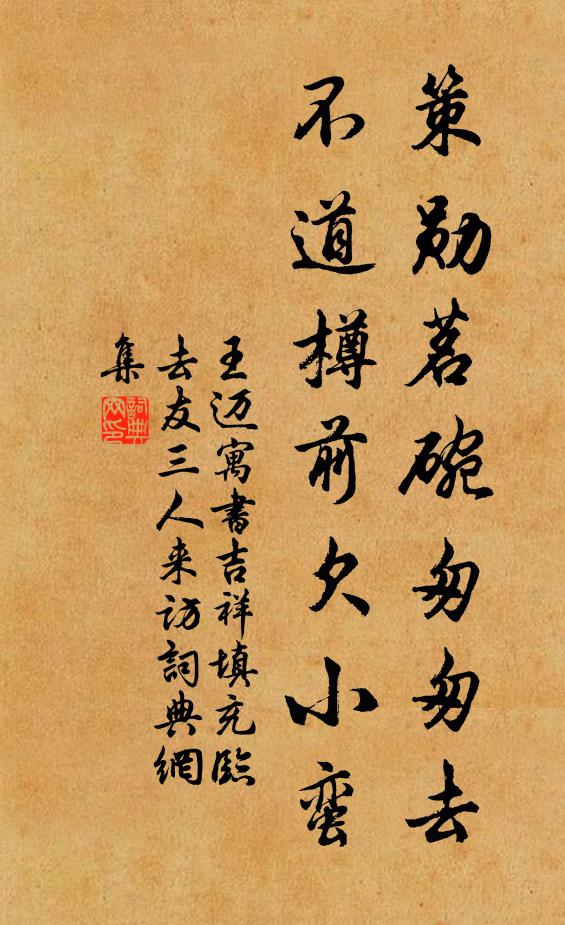 策勋茗碗匆匆去
不道樽前欠小蛮
王迈寓书吉祥填充临
去友三人来访詞典網
集
詞典
网印